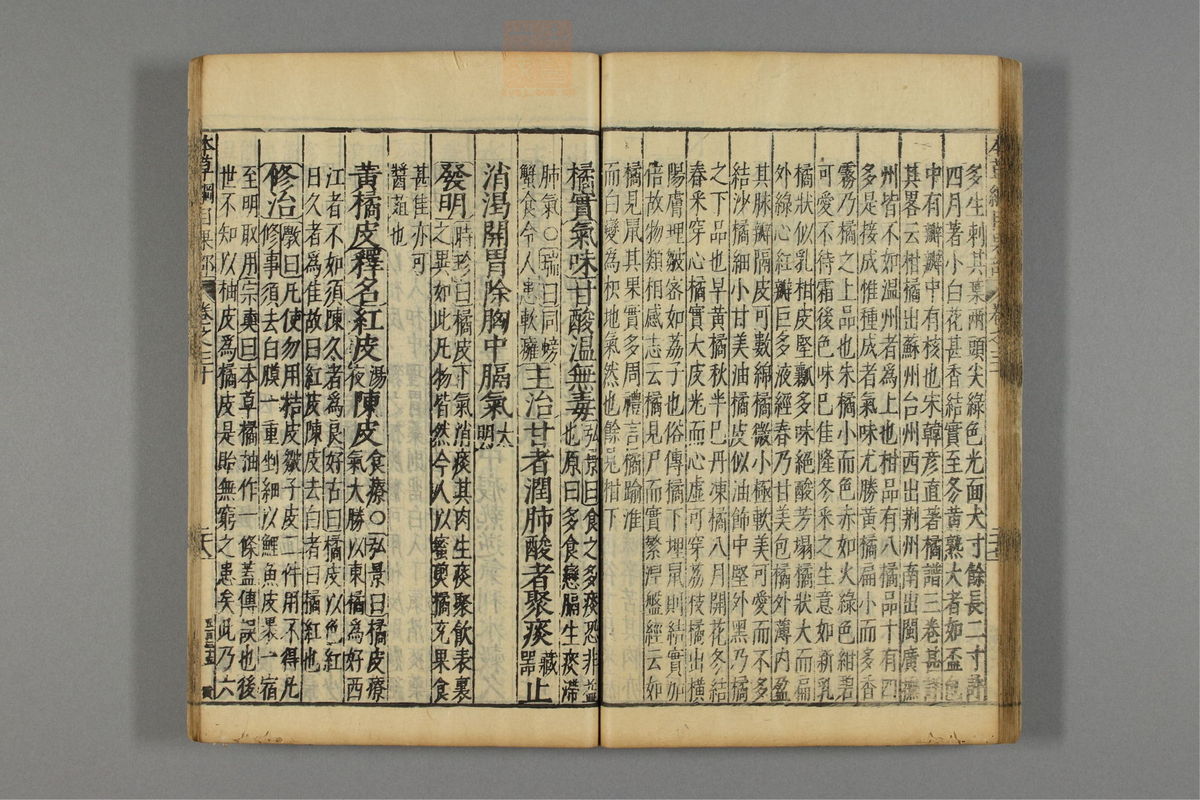 多生刺其葉兩頭尖綠色光面大寸餘長二寸許
四月著小白花甚香結實至冬黃熟大者如盃包
中有瓣瓣中有核也宋韓彥直著橘譜三卷甚詳
其畧云柑橘出蘇州台州西出荊州南出閩廣撫
州皆不如溫州者爲上也柑品有八橘品十有四
多是接成惟種成者氣味尤勝黃橘扁小而多香
霧乃橘之上品也朱橘小而色赤如火綠色紺碧
可愛不待霜後色味已佳隆冬釆之生意如新乳
橘狀似乳柑皮堅瓤多味絕酸芳塌橘狀大而扁
外綠心紅瓣巨多液經春乃甘美包橘外薄內盈
其脉瓣隔皮可數綿橘微小極軟美可愛而不多
結沙橘細小甘美油橘皮似油飾中堅外黑乃橘
之下品也早黃橘秋半已丹凍橘八月開花冬結
春釆穿心橘實大皮光而心虛可穿荔枝橘出橫
陽膚理皺密如荔子也俗傳橘下埋鼠則結實加
倍故物類相感志云橘見尸而實繁涅槃經云如
橘見鼠其果實多周禮言橘踰淮
而北變爲枳地氣然也餘見柑下
橘實氣味甘酸溫無毒弘景曰食之多痰恐非益
也原曰多食戀膈生痰滯
肺氣〇瑞曰同螃
蟹食令人患軟癰主治甘者潤肺酸者聚痰藏
器止
消渴開胃除胸中膈氣大
明
發明時珍曰橘皮下氣消痰其肉生痰聚飲表裏
之異如此凡物皆然今人以蜜煎橘充果食
甚佳亦可
醬菹也
黃橘皮釋名紅皮湯
液陳皮食療〇弘景曰橘皮療
氣大勝以東橘爲好西
江者不如須陳久者爲良好古曰橘皮以色紅
日久者爲佳故曰紅皮陳皮去白者曰橘紅也
修治斆曰凡使勿用柑皮皺子皮二件用不得凡
修事須去白膜一重剉細以鯉魚皮裹一宿
至明取用宗奭曰本草橘柚作一條蓋傳誤也後
世不知以柚皮爲橘皮是貽無窮之患矣此乃六
本草綱目果部 卷之三十